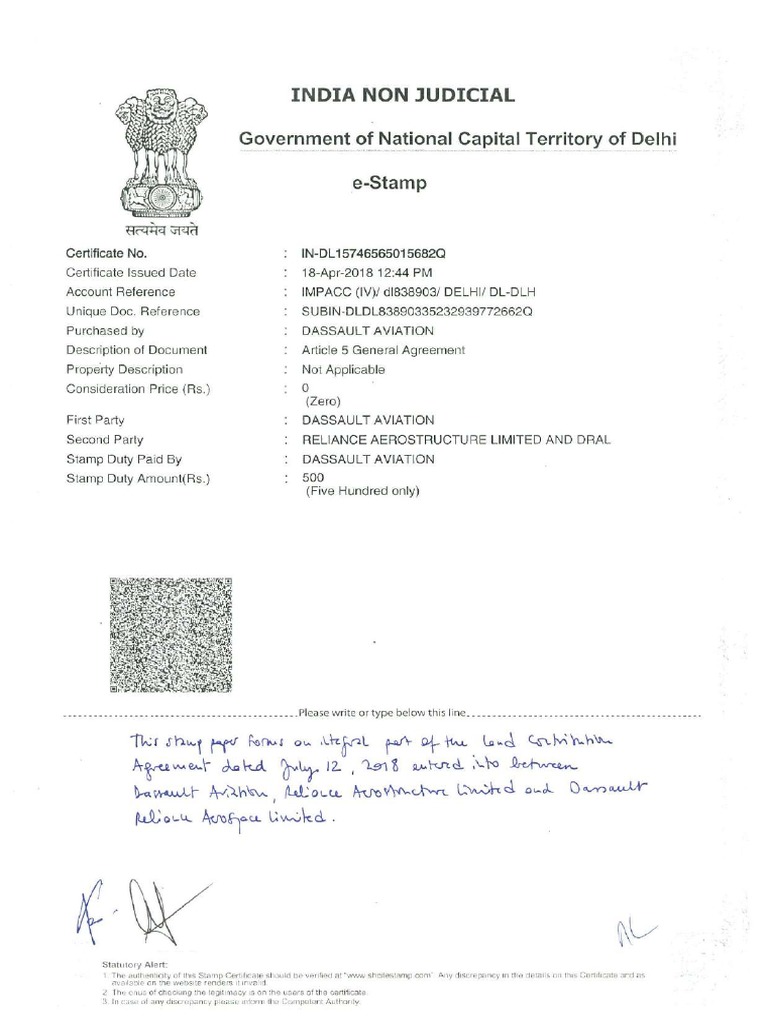 INDIA NON JUDICIAL
Government of National Capital Territory of Delhi
e-Stamp
सत्यमेव जयते
Certificate No. : IN-DL15746565015682Q
Certificate Issued Date : 18-Apr-2018 12:44 PM
Account Reference : IMPACC (IV)/ dl838903/ DELHI/ DL-DLH
Unique Doc. Reference : SUBIN-DLDL83890335232939772662Q
Purchased by : DASSAULT AVIATION
Description of Document : Article 5 General Agreement
Property Description : Not Applicable
Consideration Price (Rs.) : 0
(Zero)
First Party : DASSAULT AVIATION
Second Party : RELIANCE AEROSTRUCTURE LIMITED AND DRAL
Stamp Duty Paid By : DASSAULT AVIATION
Stamp Duty Amount(Rs.) : 500
(Five Hundred only)
Please write or type below this line
This stamp paper forms an integral part of the land Contribution
Agreement dated July 12, 2018 entered into between
Dassault Aviation, Reliance Aerostructure Limited and Dassault
Reliance Aerospace Limited.
Statutory Alert:
1. The authenticity of this Stamp Certificate should be verified at "www.shcilestamp.com". Any discrepancy in the details on this Certificate and as
available on the website renders it invalid.
2. The onus of checking the legitimacy is on the users of the certificate.
3. In case of any discrepancy please inform the Competent Authority.